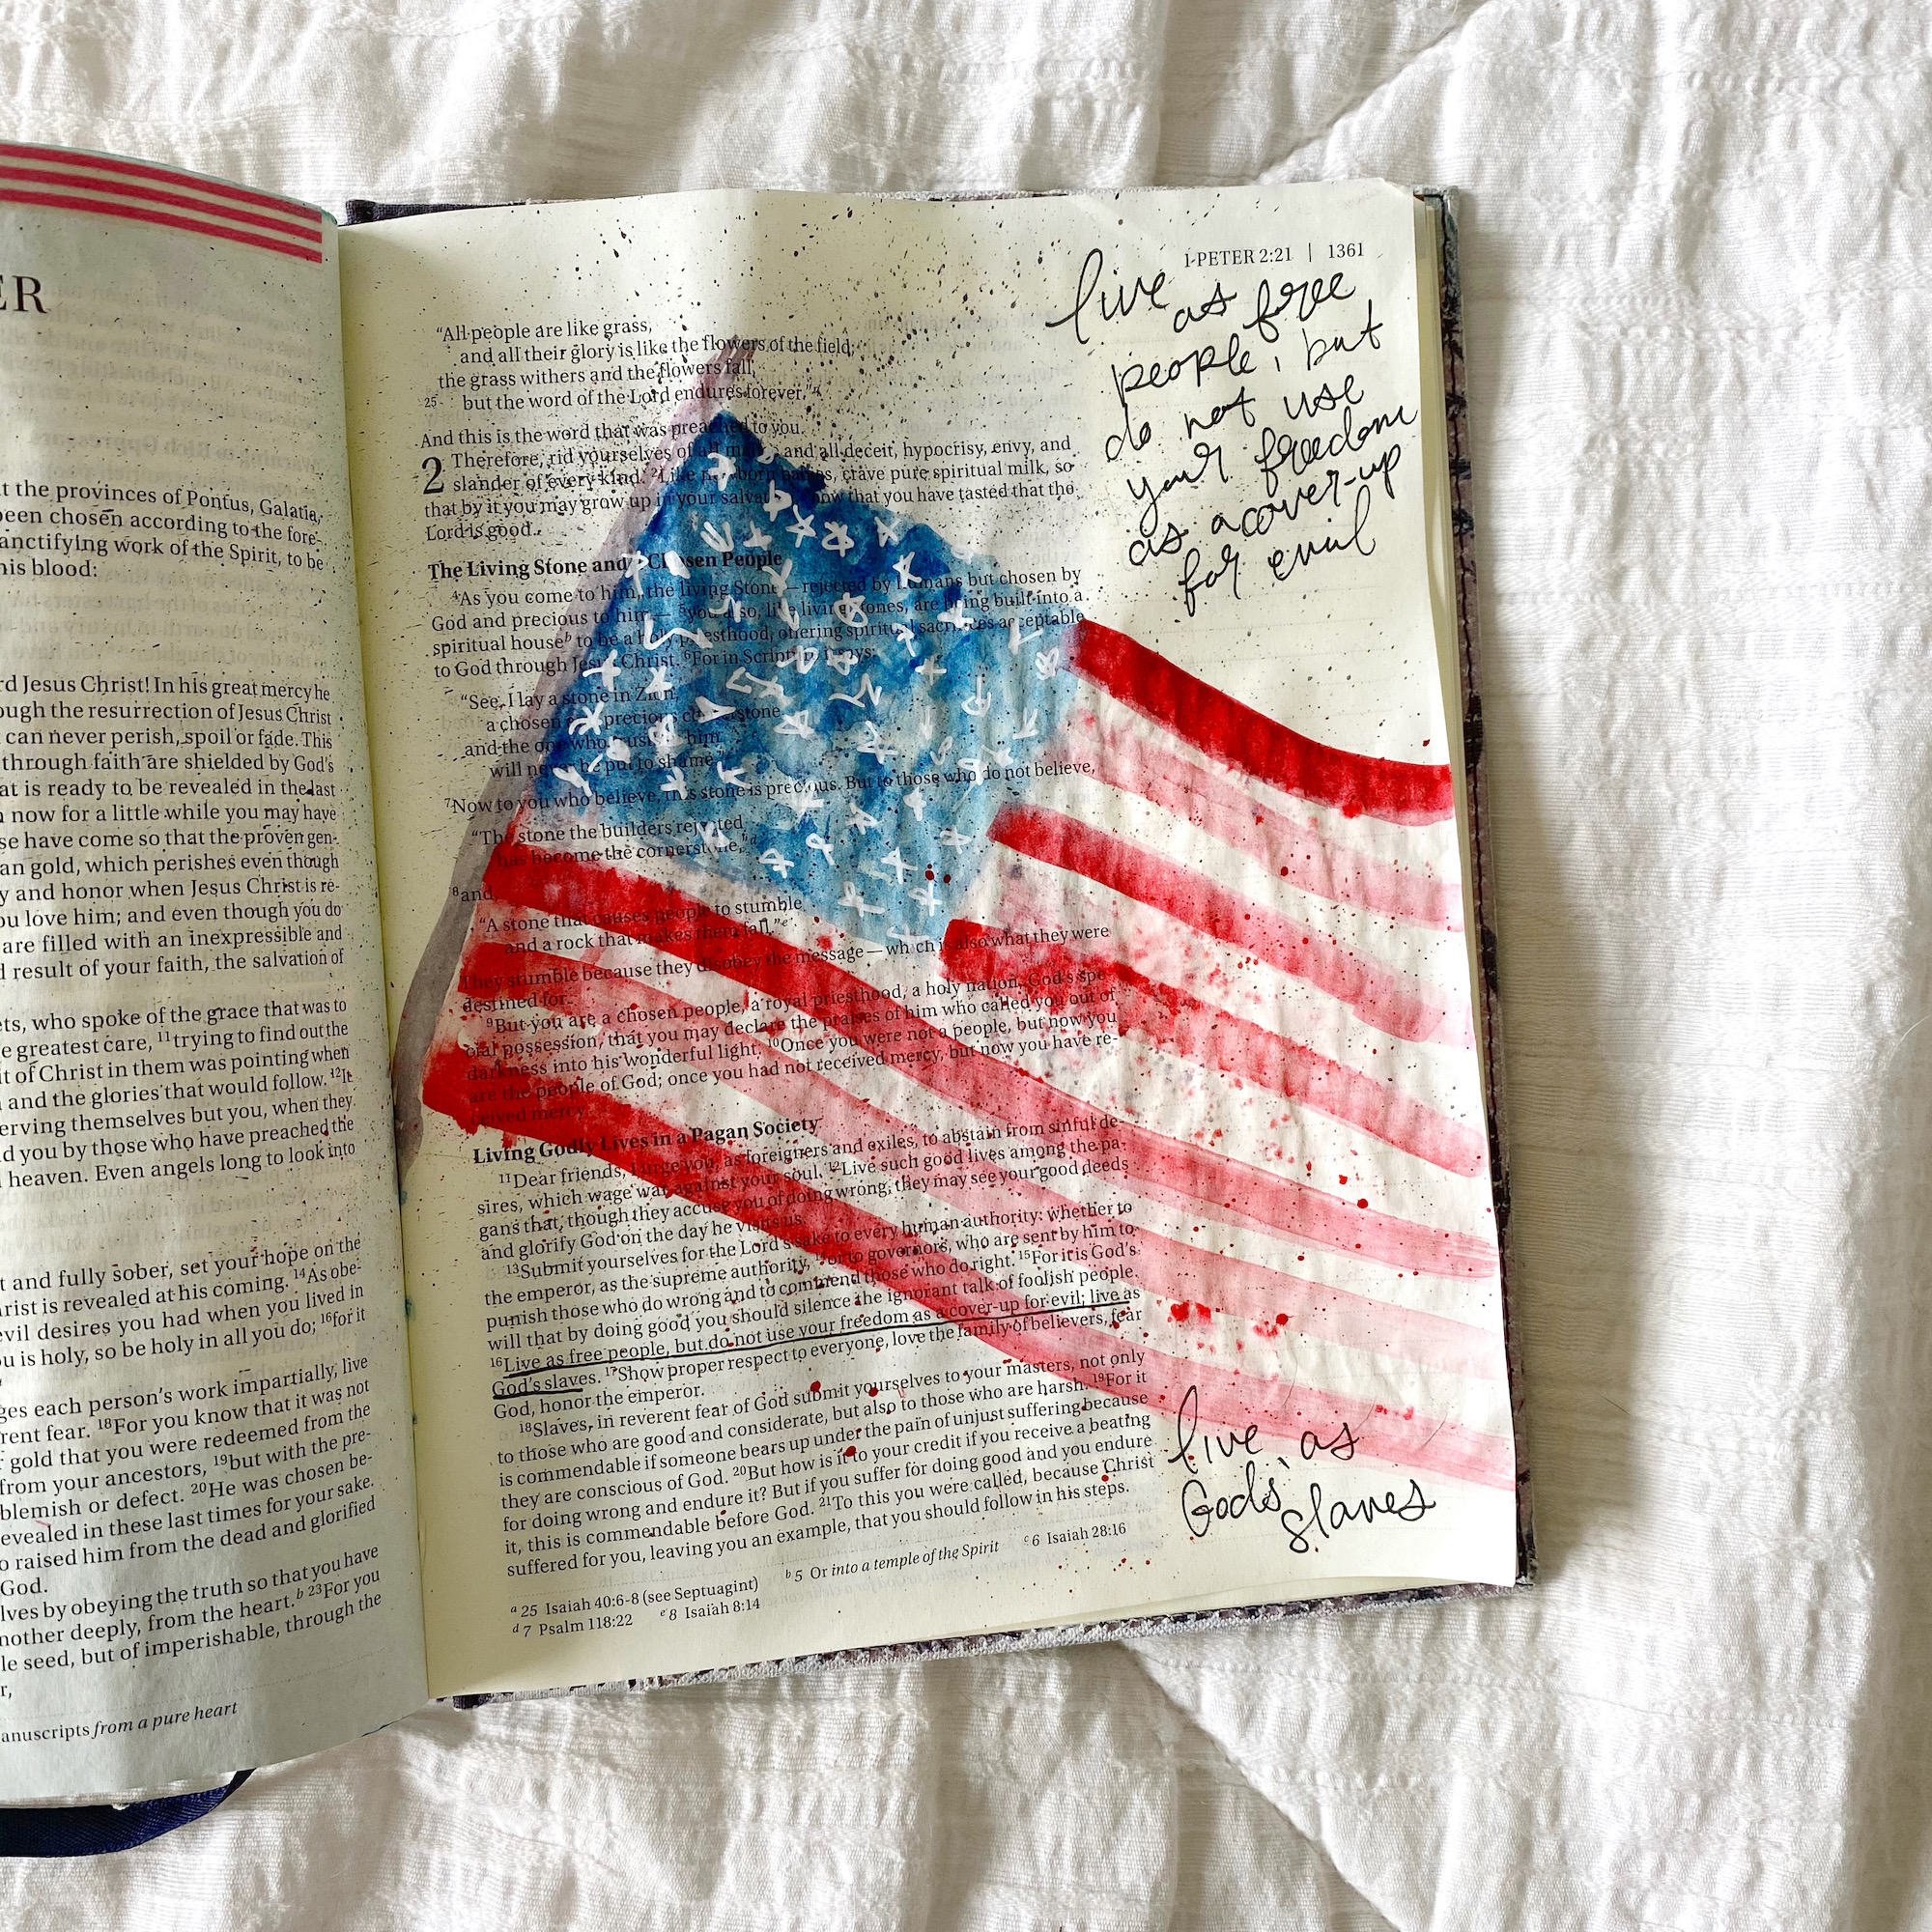 ER
t the provinces of Pontus, Galatia,
been chosen according to the fore-
anctifying work of the Spirit, to be
his blood:
rd Jesus Christ! In his great mercy he
ough the resurrection of Jesus Christ
can never perish, spoil or fade. This
through faith are shielded by God's
at is ready to be revealed in the last
n now for a little while you may have
se have come so that the proven gen-
an gold, which perishes even though
y and honor when Jesus Christ is re-
ou love him; and even though you do
are filled with an inexpressible and
d result of your faith, the salvation of
ets, who spoke of the grace that was to
e greatest care, 11trying to find out the
it of Christ in them was pointing when
and the glories that would follow. 12It
erving themselves but you, when they
d you by those who have preached the
heaven. Even angels long to look into
t and fully sober, set your hope on the
rist is revealed at his coming. 14As obe-
evil desires you had when you lived in
u is holy, so be holy in all you do; 16for it
ges each person's work impartially, live
rent fear. 18For you know that it was not
r gold that you were redeemed from the
from your ancestors, 19but with the pre-
blemish or defect. 20He was chosen be-
evealed in these last times for your sake.
o raised him from the dead and glorified
God.
lves by obeying the truth so that you have
nother deeply, from the heart.b 23For you
le seed, but of imperishable, through the
r,
anuscripts from a pure heart
1 PETER 2:21 | 1361
live
as free
people, but
do not use
your freedom
as a cover-up
for evil
"All people are like grass,
and all their glory is like the flowers of the field;
the grass withers and the flowers fall,
25 but the word of the Lord endures forever."a
And this is the word that was preached to you.
2 Therefore, rid yourselves of all malice and all deceit, hypocrisy, envy, and
slander of every kind. 2Like newborn babies, crave pure spiritual milk, so
that by it you may grow up in your salvation, now that you have tasted that the
Lord is good.
The Living Stone and a Chosen People
4As you come to him, the living Stone—rejected by humans but chosen by
God and precious to him— 5you also, like living stones, are being built into a
spiritual houseb to be a holy priesthood, offering spiritual sacrifices acceptable
to God through Jesus Christ. 6For in Scripture it says:
"See, I lay a stone in Zion,
a chosen and precious cornerstone,
and the one who trusts in him
will never be put to shame."
7Now to you who believe, this stone is precious. But to those who do not believe,
"The stone the builders rejected
has become the cornerstone,"d
8and,
"A stone that causes people to stumble
and a rock that makes them fall."e
They stumble because they disobey the message—which is also what they were
destined for.
9But you are a chosen people, a royal priesthood, a holy nation, God's spe-
cial possession, that you may declare the praises of him who called you out of
darkness into his wonderful light. 10Once you were not a people, but now you
are the people of God; once you had not received mercy, but now you have re-
ceived mercy.
Living Godly Lives in a Pagan Society
11Dear friends, I urge you, as foreigners and exiles, to abstain from sinful de-
sires, which wage war against your soul. 12Live such good lives among the pa-
gans that, though they accuse you of doing wrong, they may see your good deeds
and glorify God on the day he visits us.
13Submit yourselves for the Lord's sake to every human authority: whether to
the emperor, as the supreme authority, 14or to governors, who are sent by him to
punish those who do wrong and to commend those who do right. 15For it is God's
will that by doing good you should silence the ignorant talk of foolish people.
16Live as free people, but do not use your freedom as a cover-up for evil; live as
God's slaves. 17Show proper respect to everyone, love the family of believers, fear
God, honor the emperor.
18Slaves, in reverent fear of God submit yourselves to your masters, not only
to those who are good and considerate, but also to those who are harsh. 19For it
is commendable if someone bears up under the pain of unjust suffering because
they are conscious of God. 20But how is it to your credit if you receive a beating
for doing wrong and endure it? But if you suffer for doing good and you endure
it, this is commendable before God. 21To this you were called, because Christ
suffered for you, leaving you an example, that you should follow in his steps.
live as
God's
slaves
a 25 Isaiah 40:6-8 (see Septuagint) b 5 Or into a temple of the Spirit c 6 Isaiah 28:16
d 7 Psalm 118:22 e 8 Isaiah 8:14